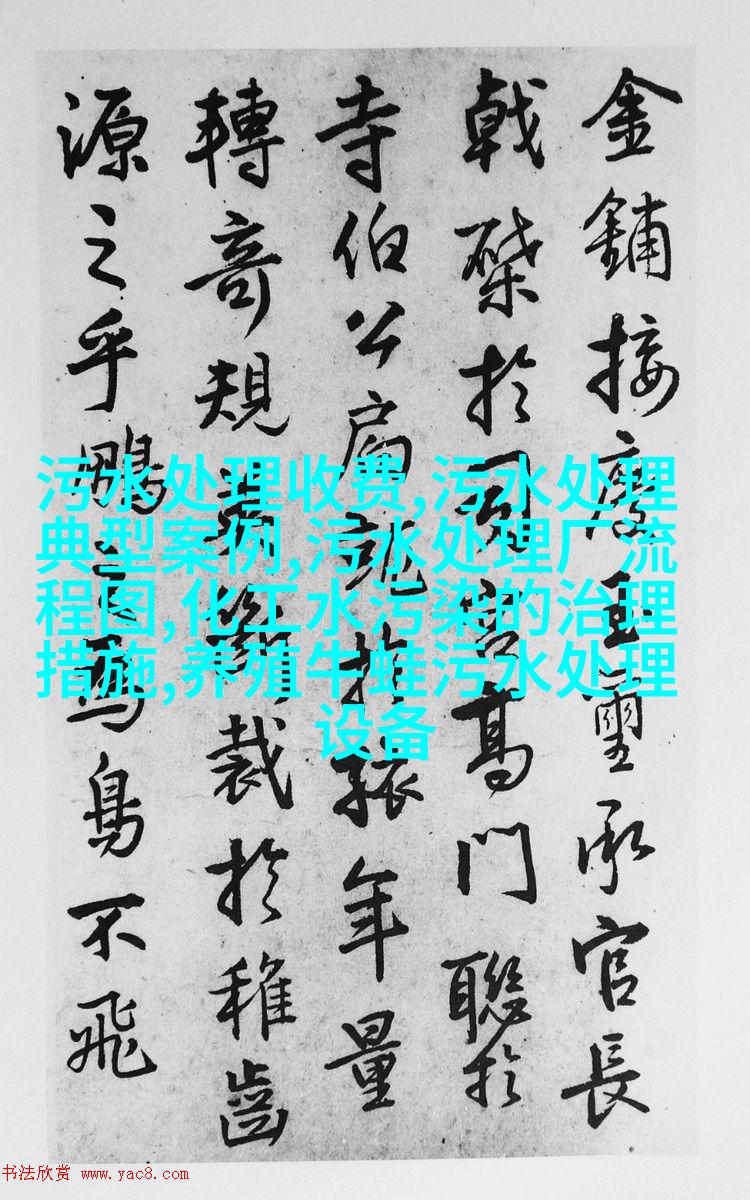 金鋪接慶玉璽承官長
戟棨於閎宮高門聯於
寺伯公扃鈗於張年量
轉奇規裁於稚齒
源之乎鵬之為鳥不飛
污水处理收费,污水处理
典型案例,污水处理厂流
程图,化工水污染的治理
措施,养殖牛蛙污水处理
设备
书法欣赏 www.yac8.com